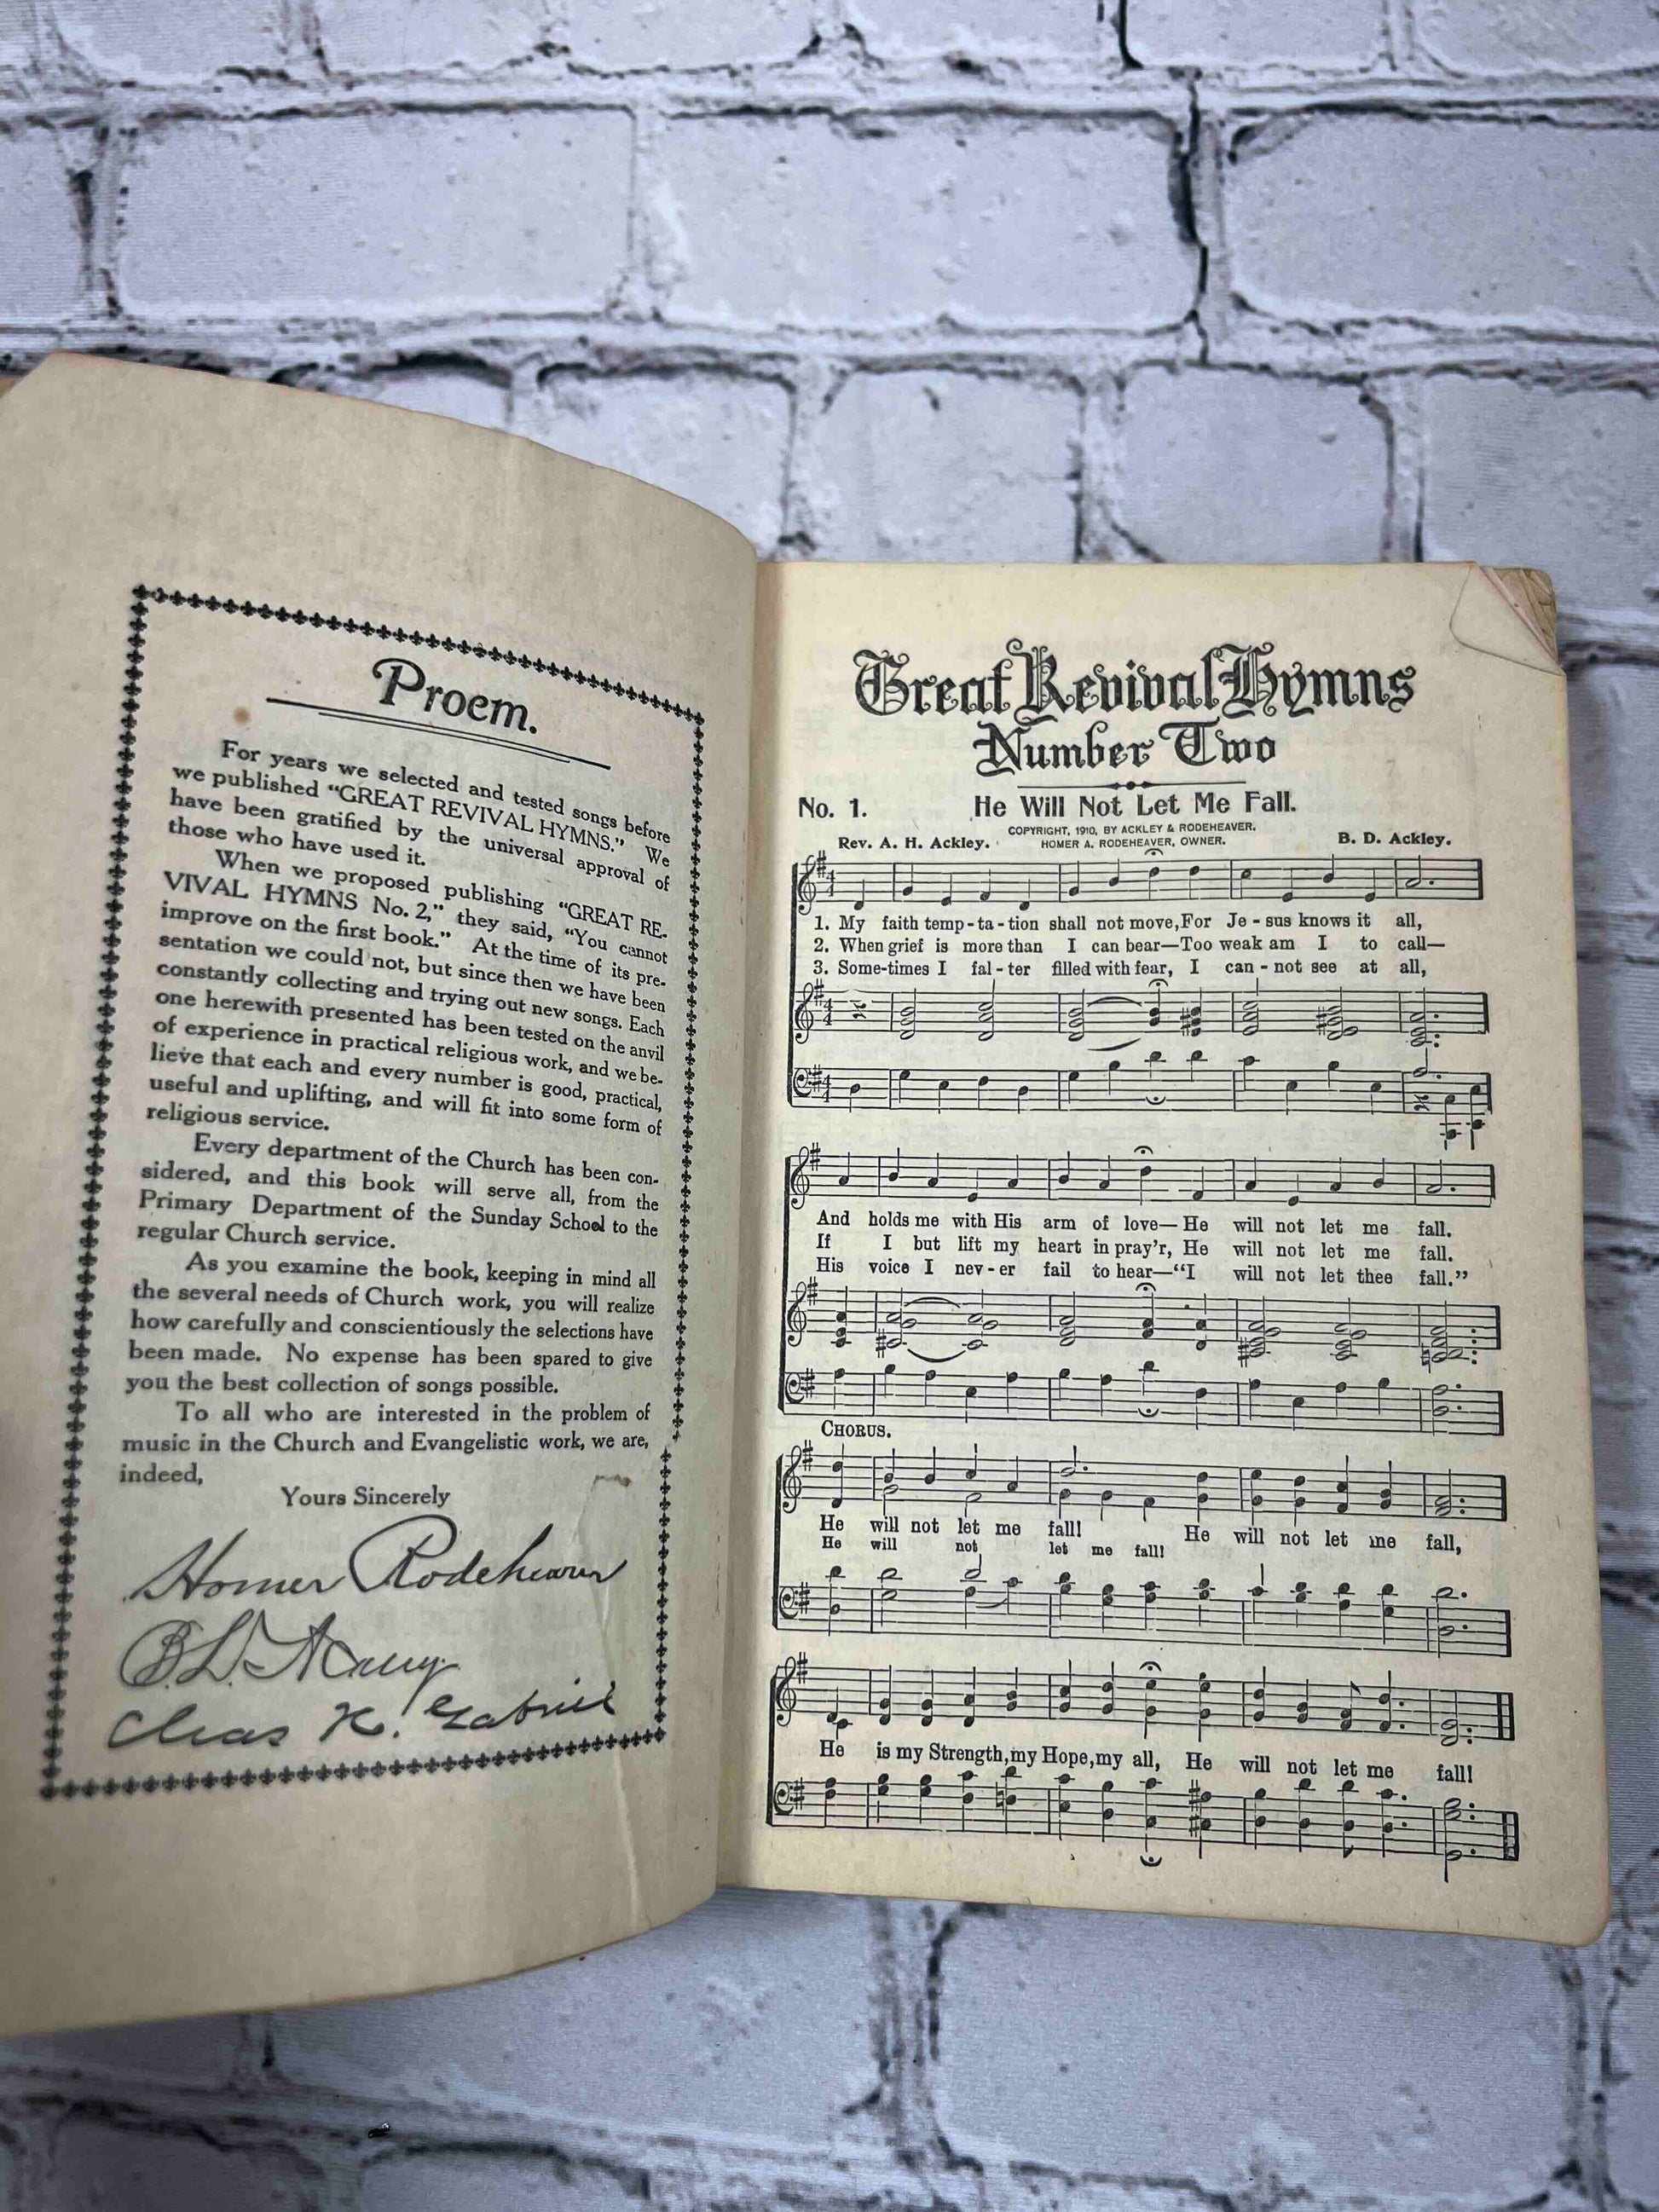 Proem.
For years we selected and tested songs before
we published "GREAT REVIVAL HYMNS." We
have been gratified by the universal approval of
those who have used it.
When we proposed publishing "GREAT RE-
VIVAL HYMNS No. 2," they said, "You cannot
improve on the first book." At the time of its pre-
sentation we could not, but since then we have been
constantly collecting and trying out new songs. Each
one herewith presented has been tested on the anvil
of experience in practical religious work, and we be-
lieve that each and every number is good, practical,
useful and uplifting, and will fit into some form of
religious service.
Every department of the Church has been con-
sidered, and this book will serve all, from the
Primary Department of the Sunday School to the
regular Church service.
As you examine the book, keeping in mind all
the several needs of Church work, you will realize
how carefully and conscientiously the selections have
been made. No expense has been spared to give
you the best collection of songs possible.
To all who are interested in the problem of
music in the Church and Evangelistic work, we are,
indeed,
Yours Sincerely
Homer Rodeheaver
B. D. Ackley
Chas H. Gabriel
Great Revival Hymns
Number Two
No. 1. He Will Not Let Me Fall.
COPYRIGHT, 1910, BY ACKLEY & RODEHEAVER.
Rev. A. H. Ackley. HOMER A. RODEHEAVER, OWNER. B. D. Ackley.
1. My faith temp-ta-tion shall not move, For Je-sus knows it all,
2. When grief is more than I can bear—Too weak am I to call—
3. Some-times I fal-ter filled with fear, I can-not see at all,
And holds me with His arm of love—He will not let me fall.
If I but lift my heart in pray'r, He will not let me fall.
His voice I nev-er fail to hear—"I will not let thee fall."
CHORUS.
He will not let me fall! He will not let me fall,
He will not let me fall!
He is my Strength, my Hope, my all, He will not let me fall!